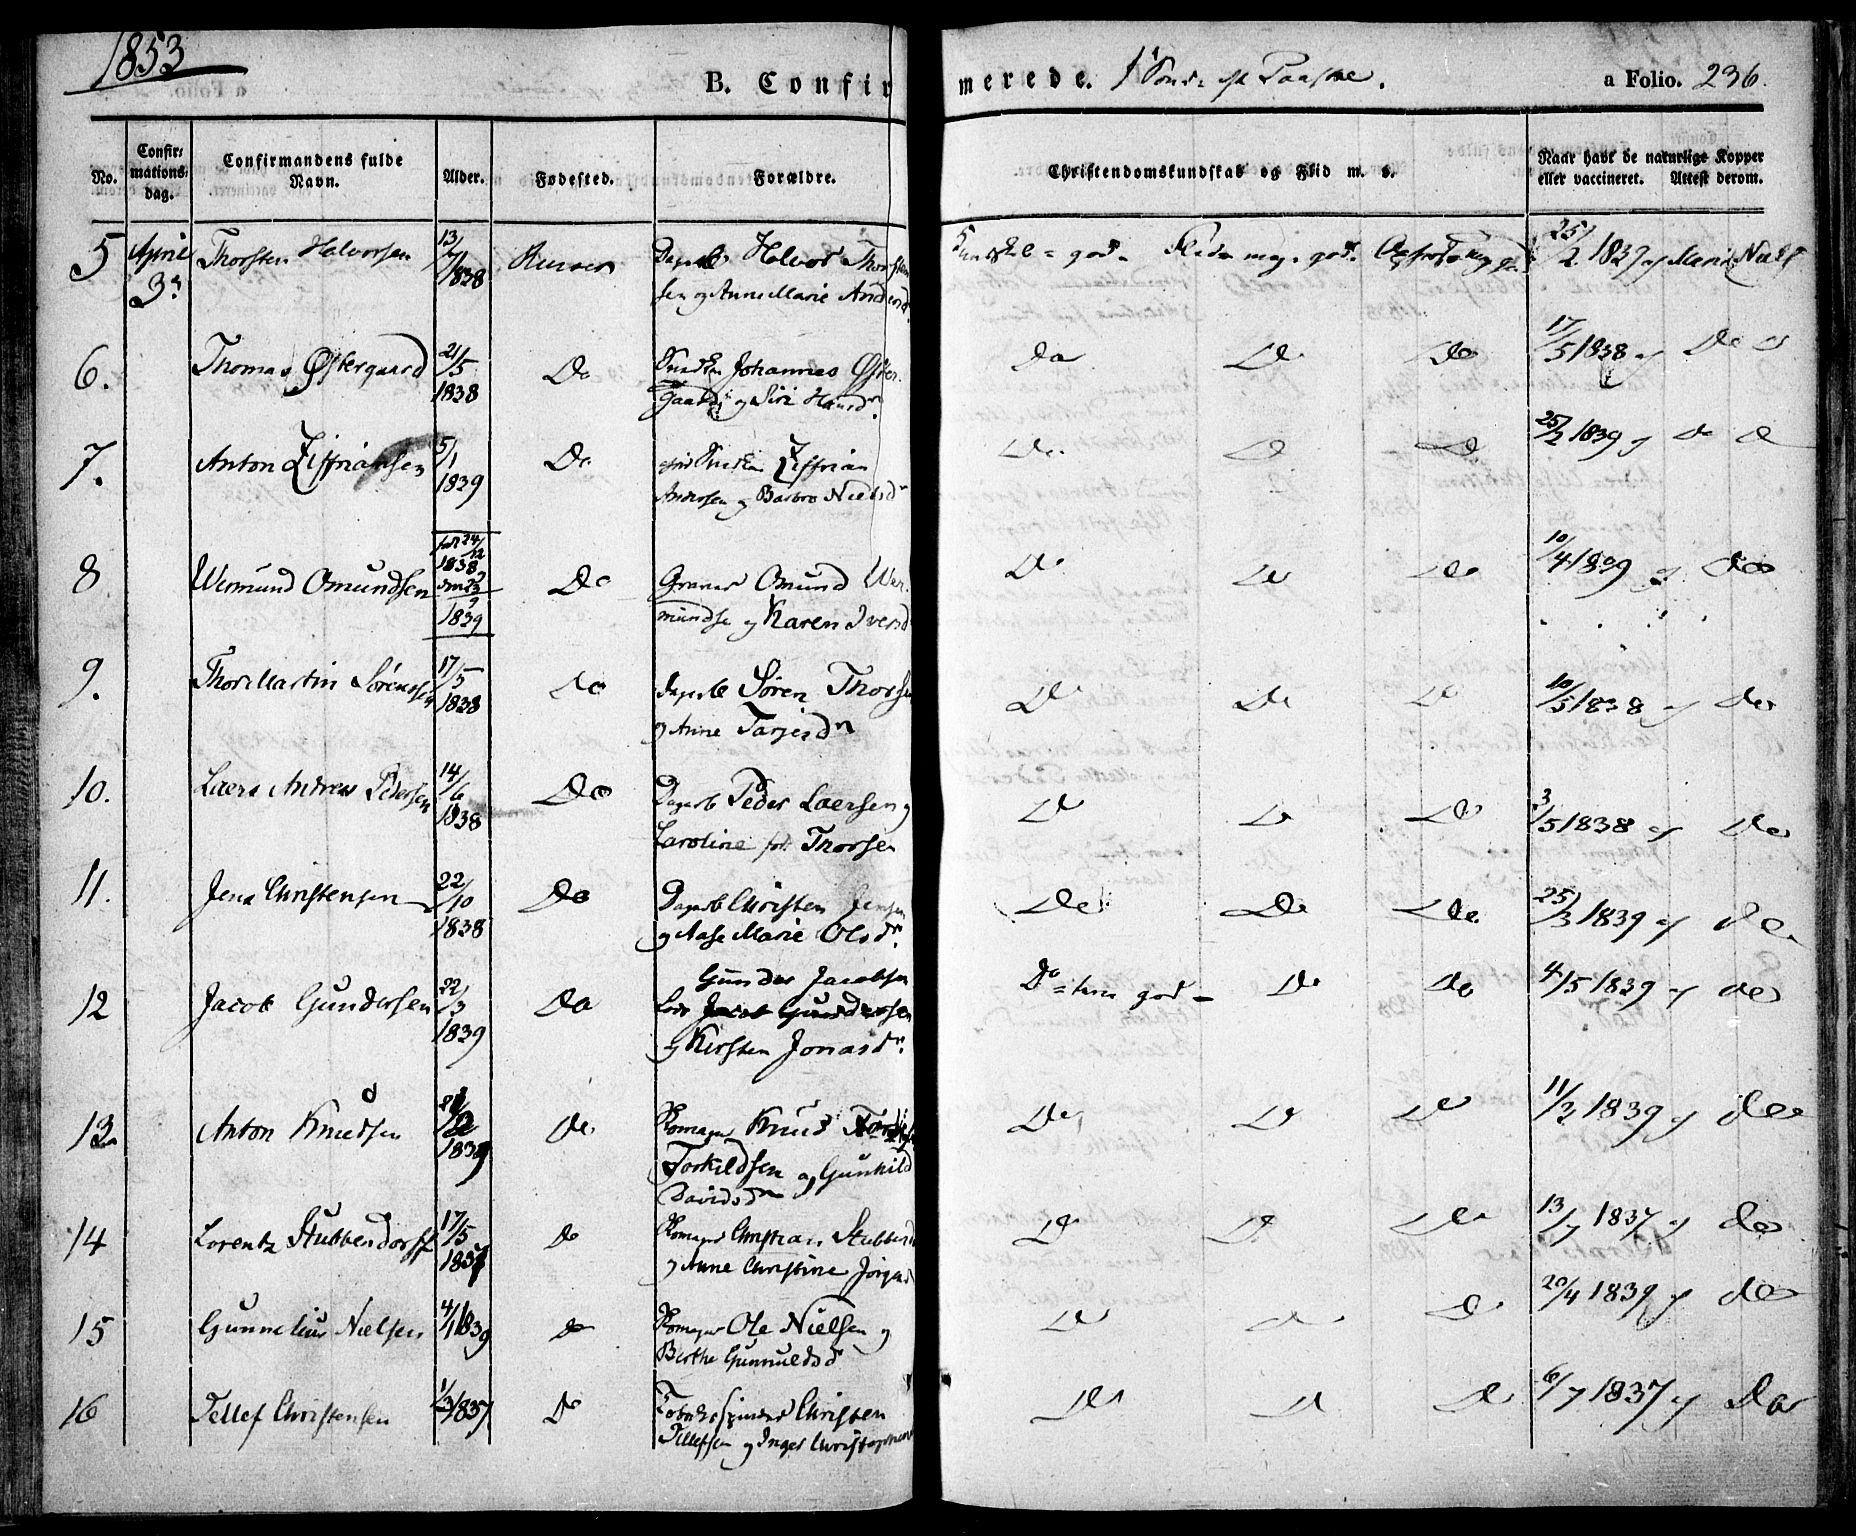 1853
B. Confirmerede. 1ste Sønd: eft Paaske. a Folio. 236.
No. Confirmationsdag. Confirmandens fulde Navn. Alder. Fødested. Forældre. Christendomskundskab og Flid m. v. Naar havt de naturlige Kopper eller vaccineret. Attest derom.
5 April Thorsten Halvorsen 13/7 1838 Dagarb Halvor Thorsten
3die sen og Anne Marie Andersd
Kundskab = god. Flid = meg. god. 25/2 1839 af Maria Nielse
6. Thomas Østergaard 21/5 1838 Do Johannes Øster
gaard og Siri Hansdr
Do Do Do 17/5 1838 af Do
7. Anton Ziffriansen 5/1 1839 Do Ziffrian
Andersen og Barbro Nielsdr
Do Do Do 25/2 1839 af Do
8 Wermund Omundsen født 24/12 1838 1839 Do Graver Omund Wer
mundse og Karen Iversd
Do Do Do 10/4 1839 af Do
9. Thor Martin Sørenssen 17/5 1838 Do Dagarb Søren Thorse
og Anne Tarjesdr
Do Do Do 10/5 1838 af Do
10. Laers Andreas Pedersen 14/6 1838 Do Dagarb Peder Laersen og
Karoline fød Thorsen
Do Do Do 3/5 1838 af Do
11. Jens Christensen 22/10 1838 Do Dagarb Christen Jensen
og Aase Marie Olsdr.
Do Do Do 25/3 1839 af Do
12 Jacob Gundersen 22/3 1839 Do Gunder Jacobsen
Lods Jacob Gundersen
og Kirsten Jonasdr.
Do = god Do Do 4/5 1839 af Do
13 Anton Knudsen 1839 Do Knud
Torkildsen og Gunhild
Davidsdr
Do Do Do 11/3 1839 af Do
14 Lorentz Stubbendorff 17/5 1837 Do Christian Stubben
og Anne Christine Jørgens
Do Do Do 13/7 1837 af Do
15 Gunnelius Nielsen 4/1 1839 Do Ole Nielsen og
Berthe Gunnuldsd
Do Do Do 20/4 1839 af Do
16 Tellef Christensen 1/3 1837 Do Christen
Tellefsen og Inger
Do Do Do 6/7 1837 af Do